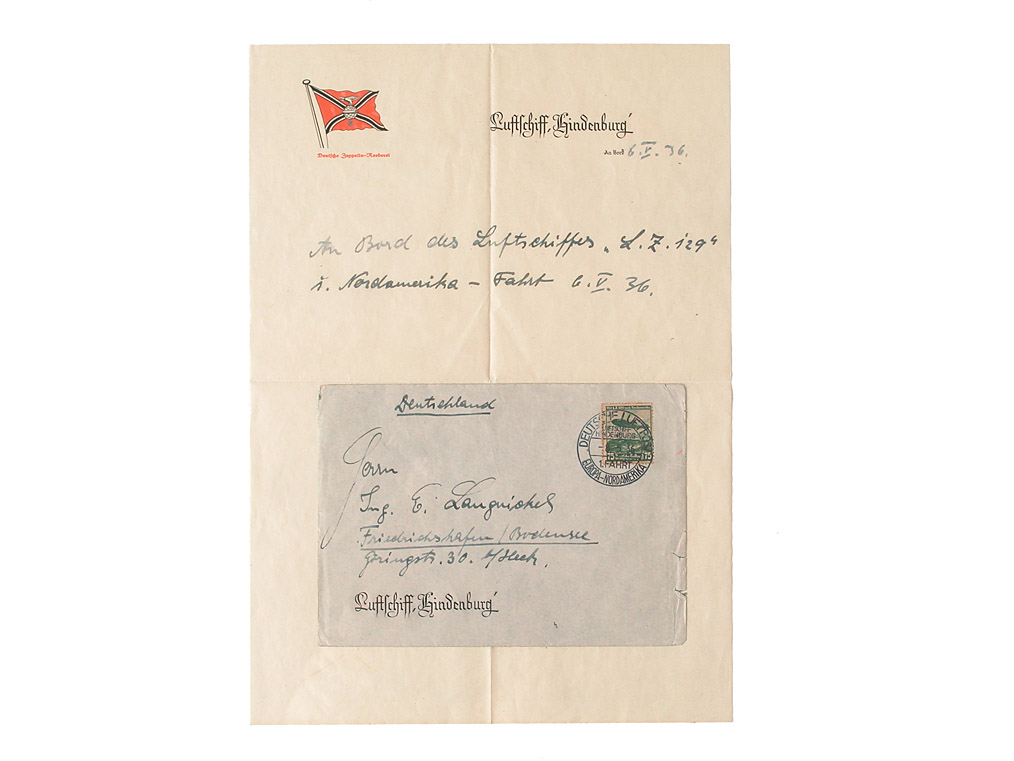 Deutsche Zeppelin-Reederei
Luftschiff „Hindenburg"
An Bord 6.V.36.
An Bord des Luftschiffes „L.Z.129"
1. Nordamerika – Fahrt 6.V.36.
Deutschland
Herrn
Ing. E. Languickel
Friedrichshafen/Bodensee
Göringstr. 30. b/Heck.
DEUTSCHE LUFTPOST
LUFTSCHIFF
HINDENBURG
1.FAHRT
EUROPA–NORDAMERIKA
75 75
Luftschiff „Hindenburg"